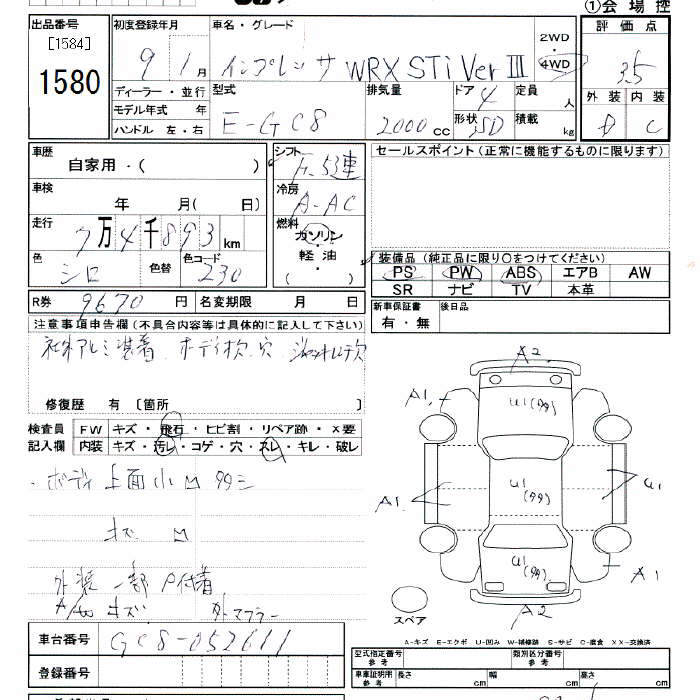 ①会場控
出品番号
[1584]
1580
初度登録年月
9 1月
車名・グレード
インプレッサ WRX STi Ver III
2WD
4WD
評価点
3.5
外装 内装
D C
ディーラー・並行
モデル年式 年
ハンドル 左・右
型式
E-GC8
排気量
2000cc
ドア
4
形状
SD
定員
人
積載
kg
車歴
自家用・( )
車検
年 月( 日)
走行
7万4千893km
色
シロ
色替
色コード
230
シフト
F.5速
冷房
A-AC
燃料
ガソリン
軽油
( )
セールスポイント(正常に機能するものに限ります)
装備品(純正品に限り○をつけてください)
PS PW ABS エアB AW
SR ナビ TV 本革
新車保証書
有・無
後日品
R券 9670円
名変期限 月 日
注意事項申告欄(不具合内容等は具体的に記入して下さい)
社外アルミ装着 ボディ 穴
修復歴 有〔箇所 〕
検査員
記入欄
FW キズ・飛石・ヒビ割・リペア跡・X要
内装 キズ・汚レ・コゲ・穴・スレ・キレ・破レ
・ボディ上面小凹
キズ 凹
外装一部P付着
A/W キズ 外マフラー
A2
A1
A1
U1(99)
U1
(99)
U1
(99)
A1
U1
A1
A2
スペア
A-キズ E-エクボ U-凹み W-補修跡 S-サビ C-腐食 XX-交換済
車台番号
GC8-052611
登録番号
型式指定番号
参考
類別区分番号
参考
車庫証明用
参考
長さ cm
幅 cm
高さ cm